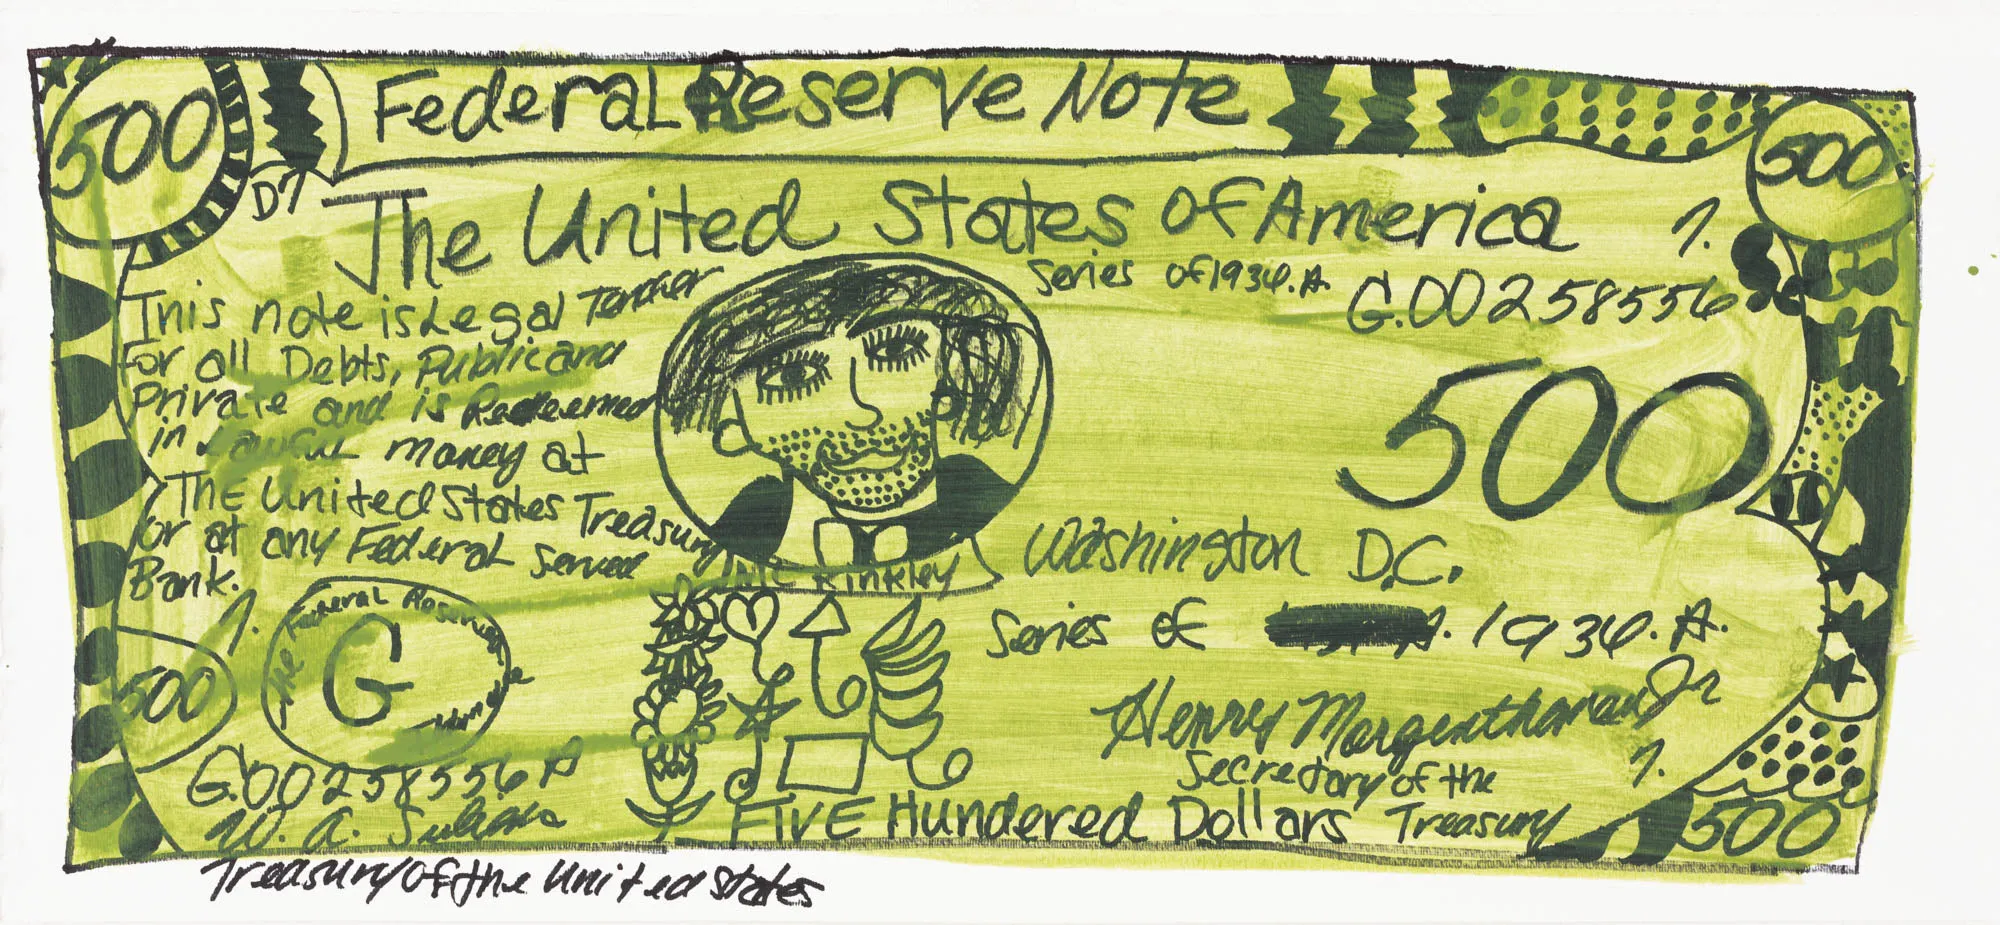 500
Federal Reserve Note
500
D7
The United States of America
7.
Series of 1934.A.
G.00258556
This note is Legal Tender
for all Debts, Public and
Private and is Redeemed
in Lawful money at
The United States Treasury
or at any Federal Served
Bank.
500
Mc Kinkley
Washington D.C.
7.
The Federal Reserve
G
500
Series of
A. 1934.A.
Henry Morgenthaw Jr
Secretary of the
Treasury
7.
G.00258556 A
W. A. Julians
Five Hundered Dollars
500
Treasury of the United States